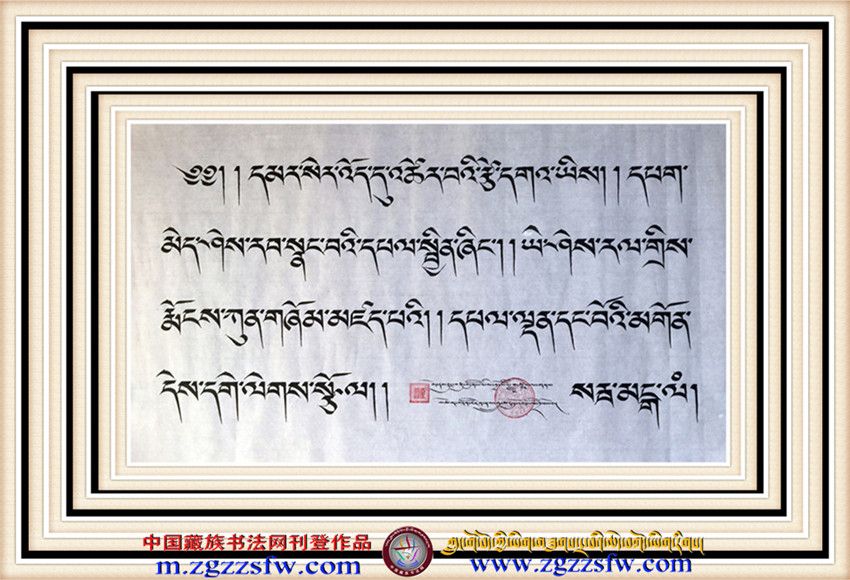 ༄༅། །དམར་སེར་འོད་དུ་འཚེར་བའི་རྩེ་དགའ་ཡིས། །དཔག་
མེད་ཤེས་རབ་སྣང་བའི་དཔལ་སྦྱིན་ཞིང་། །ཡེ་ཤེས་རལ་གྲིས་
རྨོངས་ཀུན་གཞོམ་མཛད་པའི། །དཔལ་ལྡན་དང་པོའི་མགོན་
དེས་དགེ་ལེགས་སྩོལ། །
སརྦ་མངྒ་ལཾ།
中国藏族书法网刊登作品
m.zgzzsfw.com
www.zgzzsfw.com